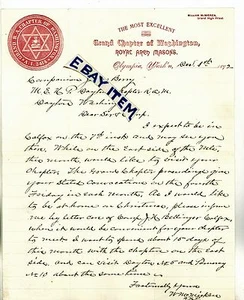 WILLIAM McMICKEN,
Grand High Priest
THE MOST EXCELLENT
Grand Chapter of Washington,
ROYAL ARCH MASONS.
Olympia, Wash'n Dec 1st 1892
Companion Berry
M. E. H. P. Dayton Chapter R.A.M.
Dayton Washington
Dear Sir & Comp.
I expect to be in
Colfax on the 7th inst and may see you
then. While on the East side of the Mts.
this month would like to visit your
Chapter. The Grand Chapter proceedings give
your Stated Convocations on the fourth
Friday in each month. As I would like
to be at home on Christmas, please inform
me by letter care of Comp J. Bellinger Colfax,
when it would be convenient for your chapter
to meet. I must spend about 15 days of
this month with the chapters on the east
side. and can visit Dayton No 5 and
No 10 about the same time
Fraternally yours
Wm McMicken
EBAY ITEM